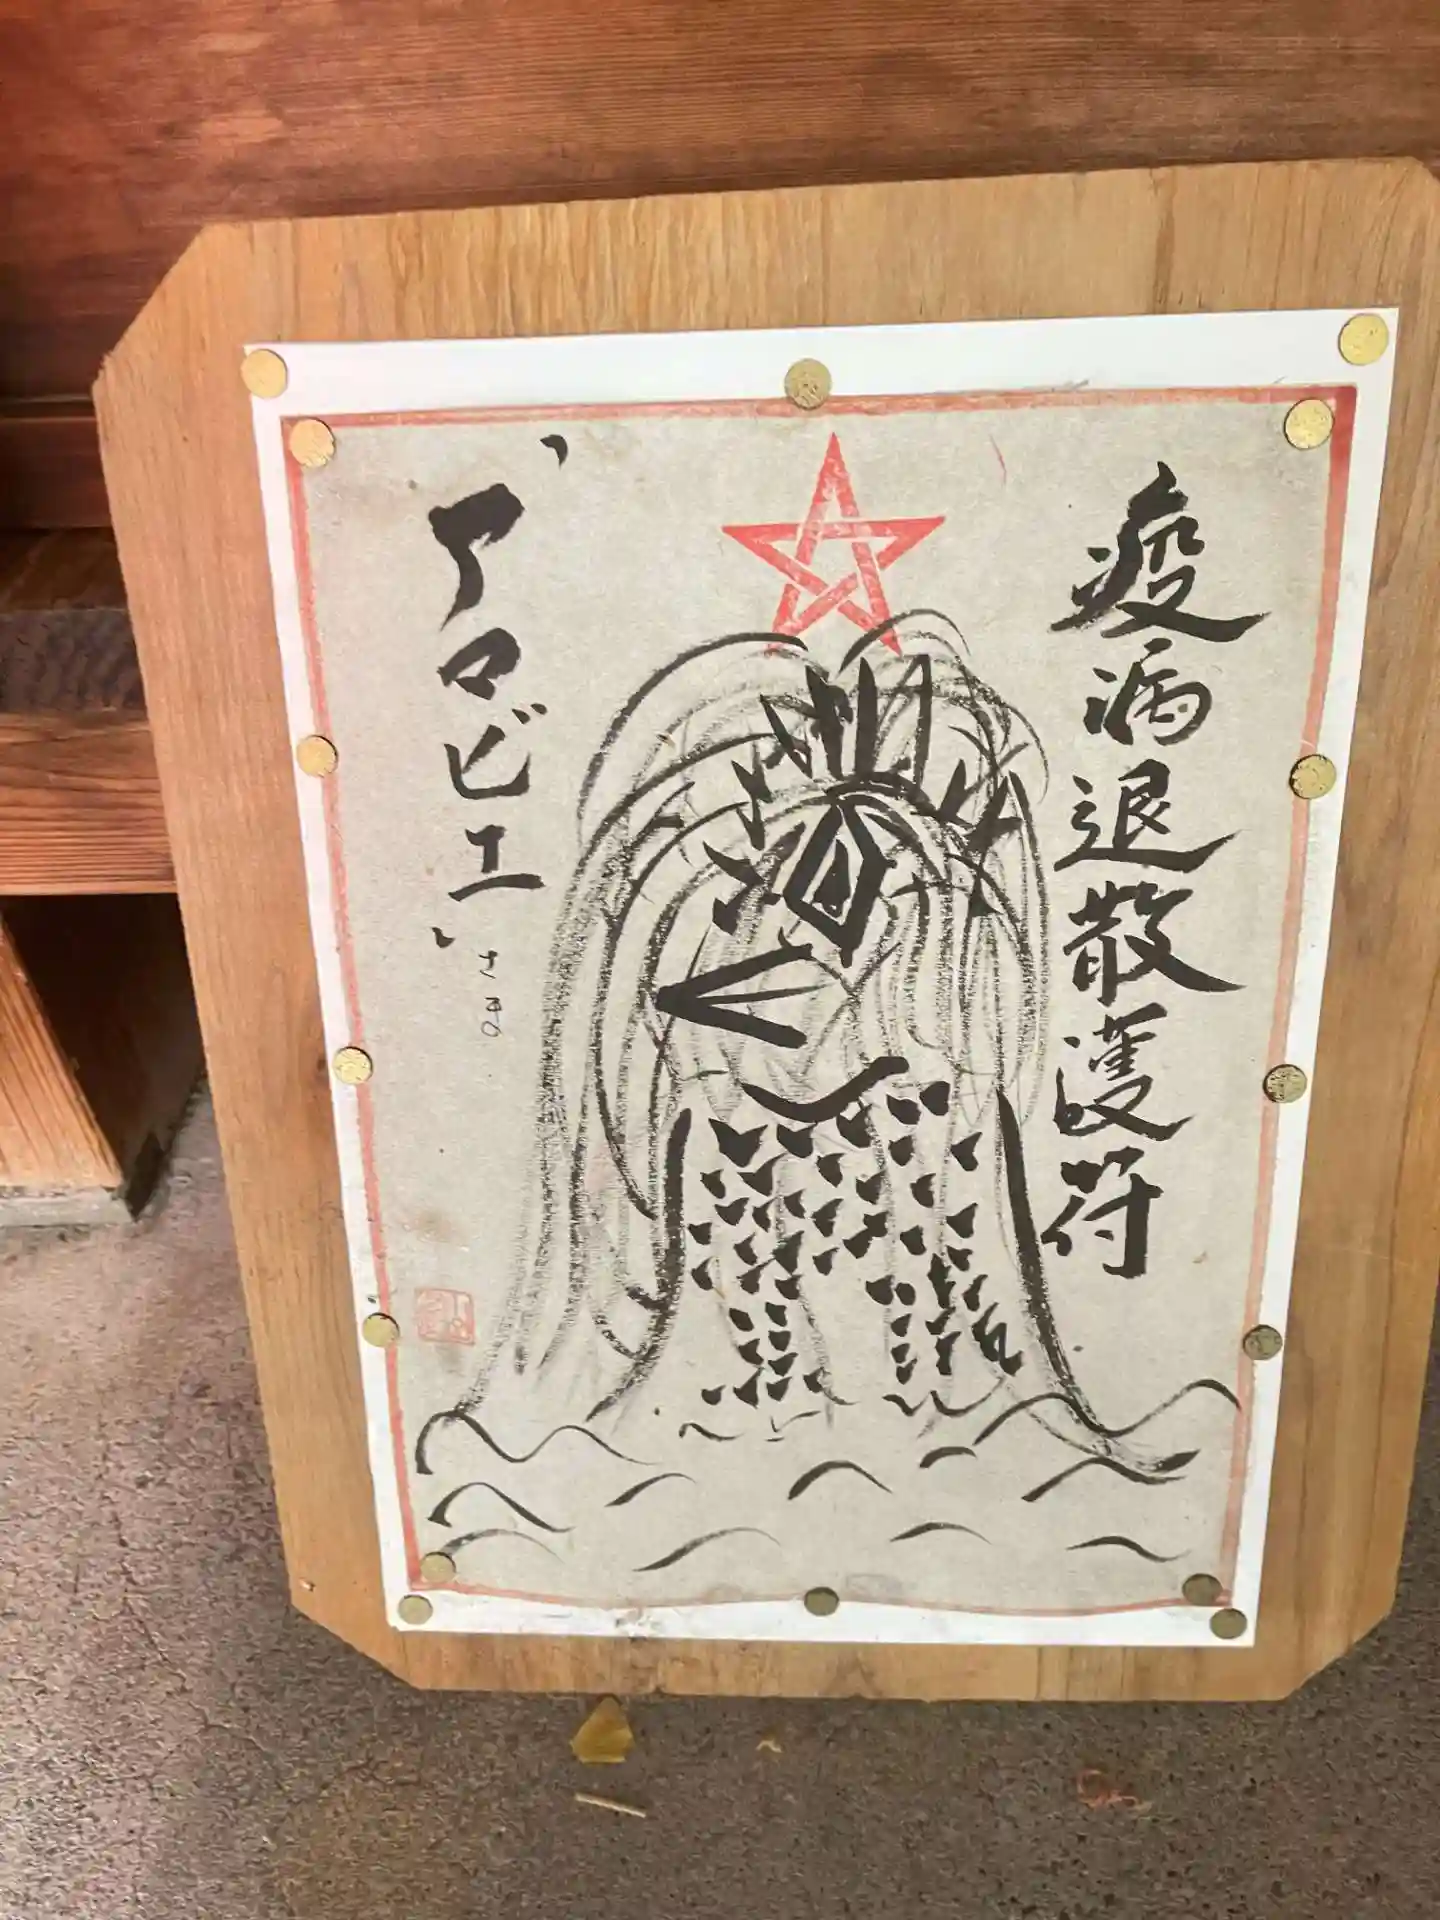 疫病退散護符
"アマビエ"